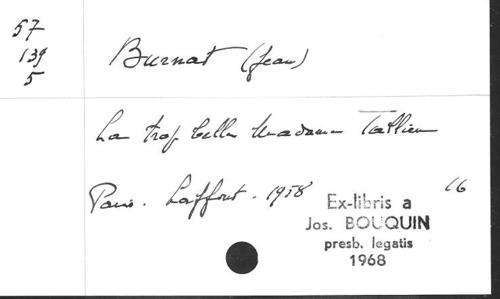 57
139
5
Burnat (Jean)
La trop belle Madame Tallien
Paris. Laffont. 1958
16
Ex-libris a
Jos. BOUQUIN
presb. legatis
1968